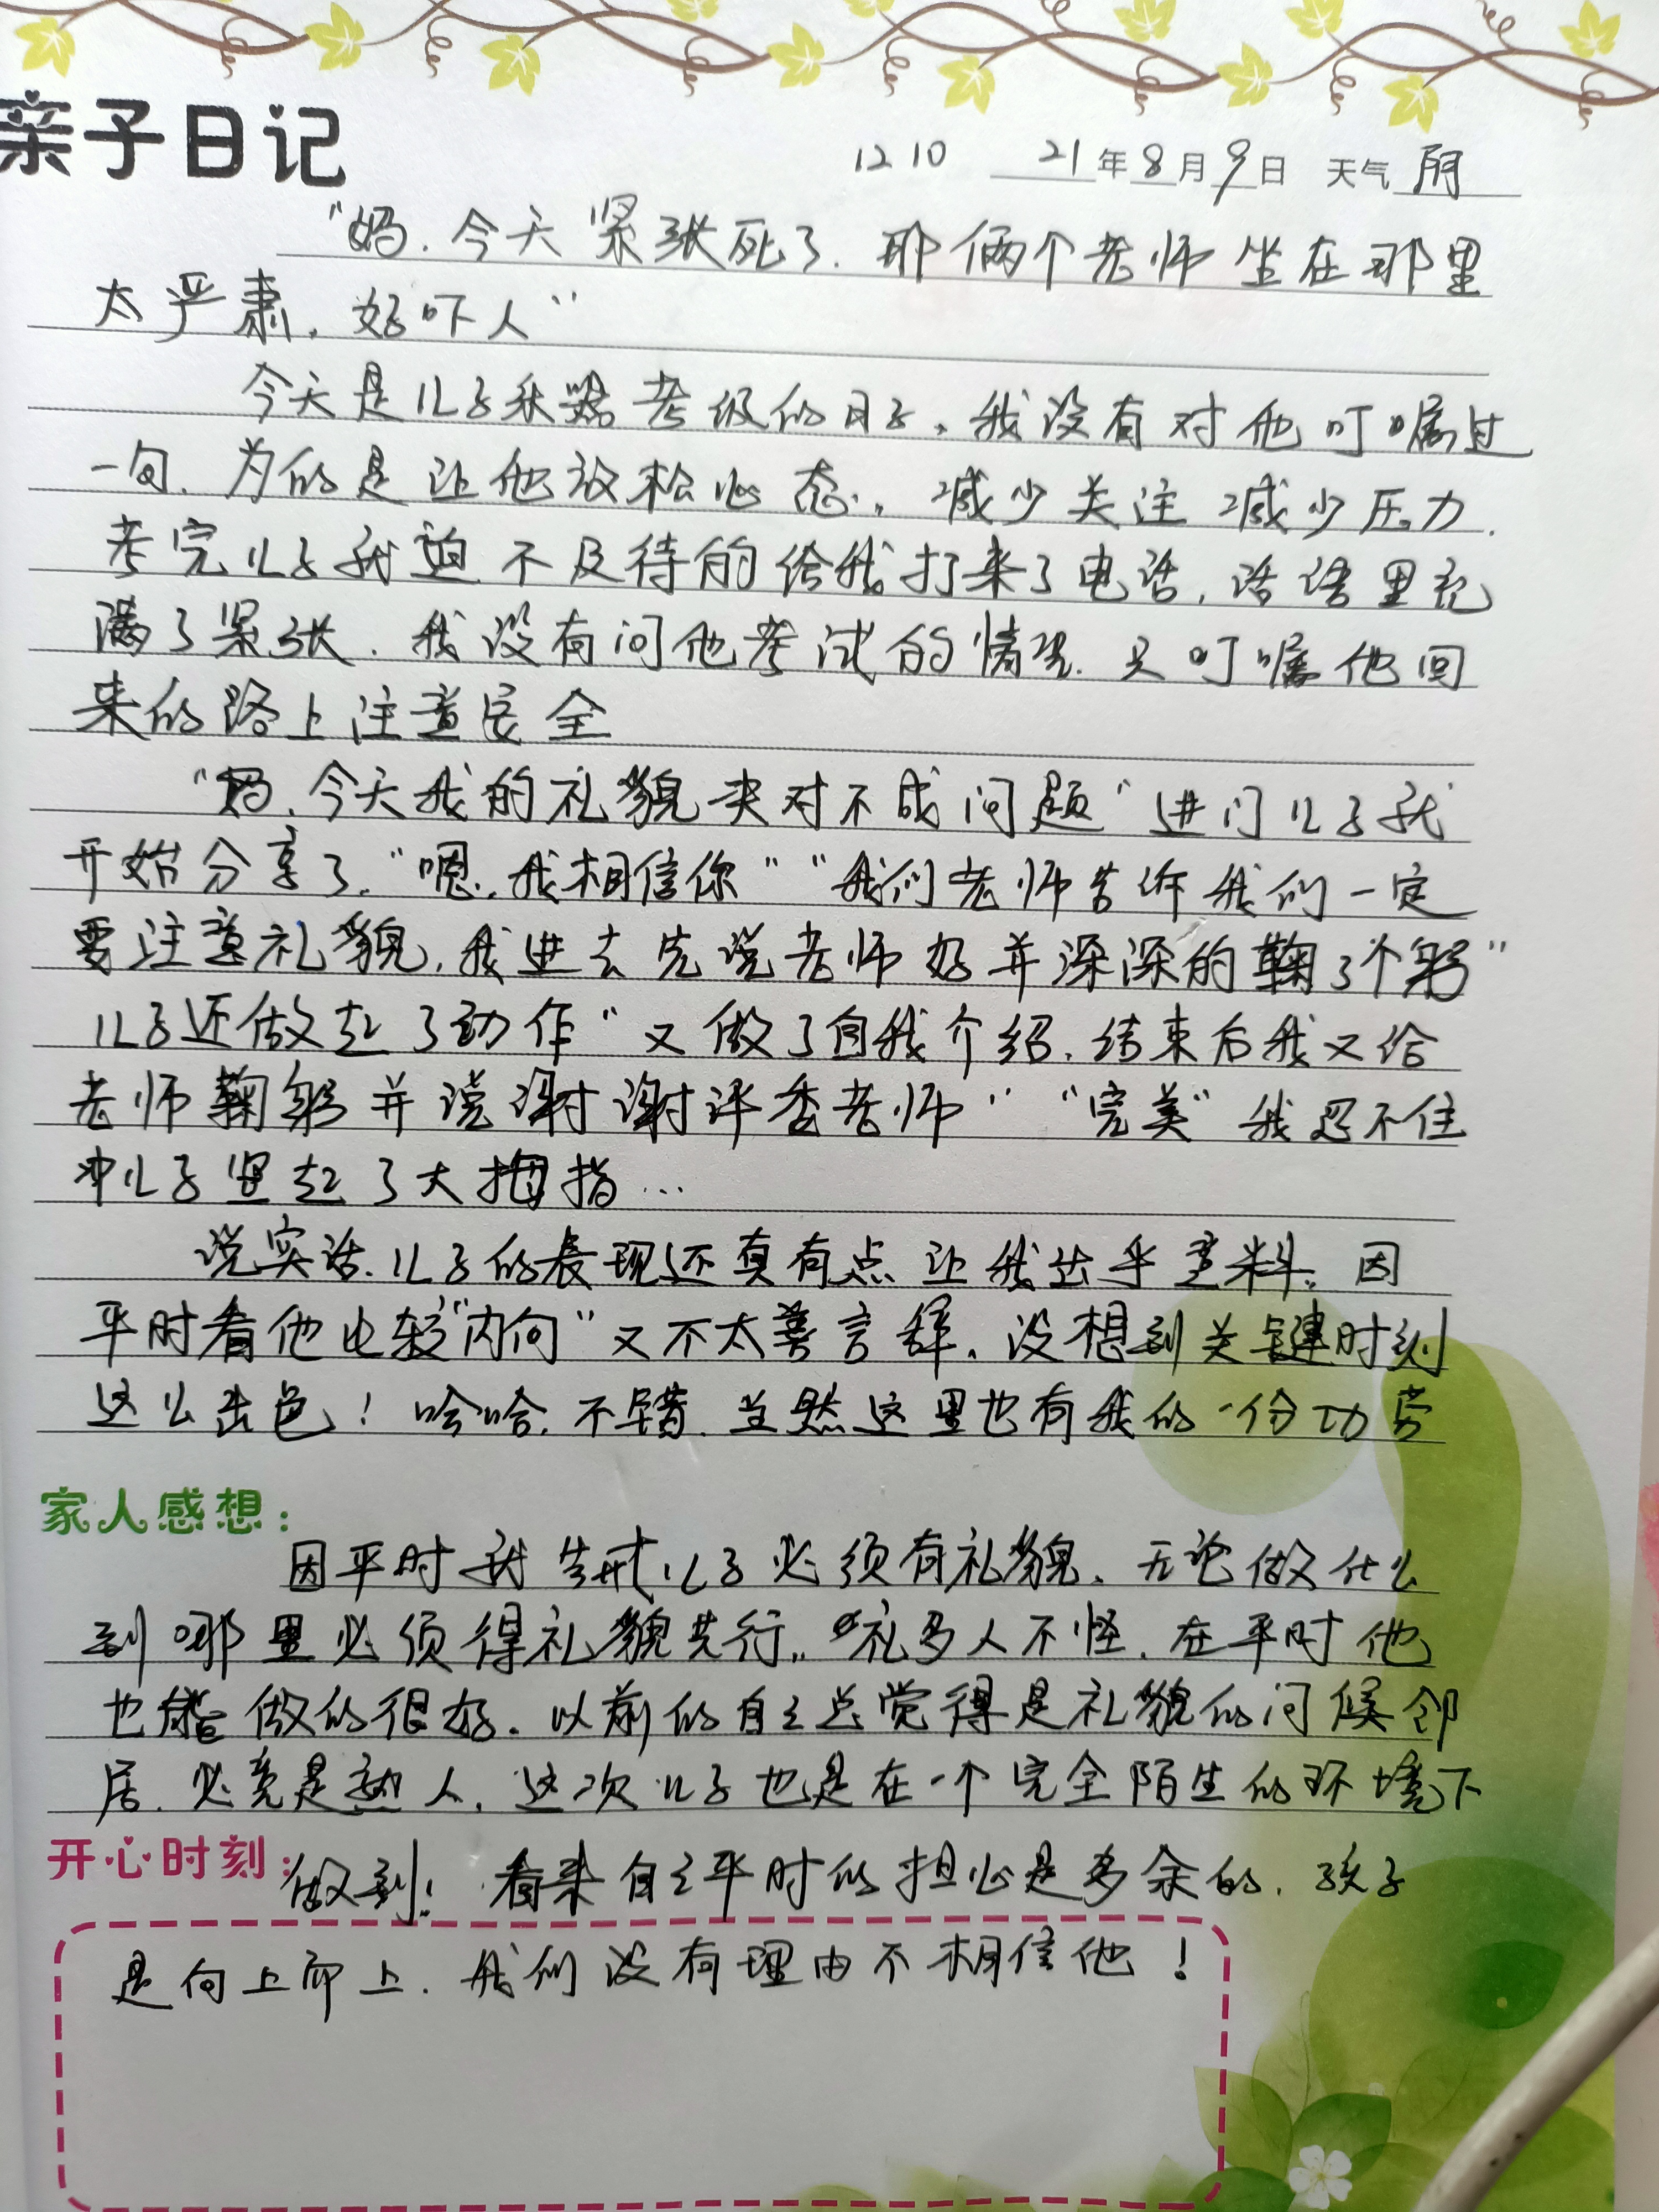 亲子日记
1210 21年8月9日 天气 阴
"妈.今天紧张死了.那俩个老师坐在那里
太严肃,好吓人"
今天是儿子乐器考级的日子,我没有对他叮嘱过
一句.为的是让他放松心态,减少关注减少压力.
考完儿子就迫不及待的给我打来了电话,话语里充
满了紧张.我没有问他考试的情况.只叮嘱他回
来的路上注意安全
"妈,今天我的礼貌决对不成问题"进门儿子就
开始分享了."嗯,我相信你""我们老师告诉我们一定
要注意礼貌,我进去先说老师好并深深的鞠了个躬"
儿子还做起了动作"又做了自我介绍,结束后我又给
老师鞠躬并说谢谢评委老师""完美"我忍不住
冲儿子竖起了大拇指...
说实话.儿子的表现还真有点让我出乎意料.因
平时看他比较"内向"又不太善言辞.没想到关键时刻
这么出色!哈哈.不错.当然这里也有我的一份功劳
家人感想:
因平时我告戒儿子必须有礼貌.无论做什么
到哪里必须得礼貌先行,"礼多人不怪.在平时他
也能做的很好.以前的自己总觉得是礼貌的问候邻
居.必竟是熟人,这次儿子也是在一个完全陌生的环境下
开心时刻:
做到!看来自己平时的担心是多余的.孩子
是向上而上.我们没有理由不相信他!